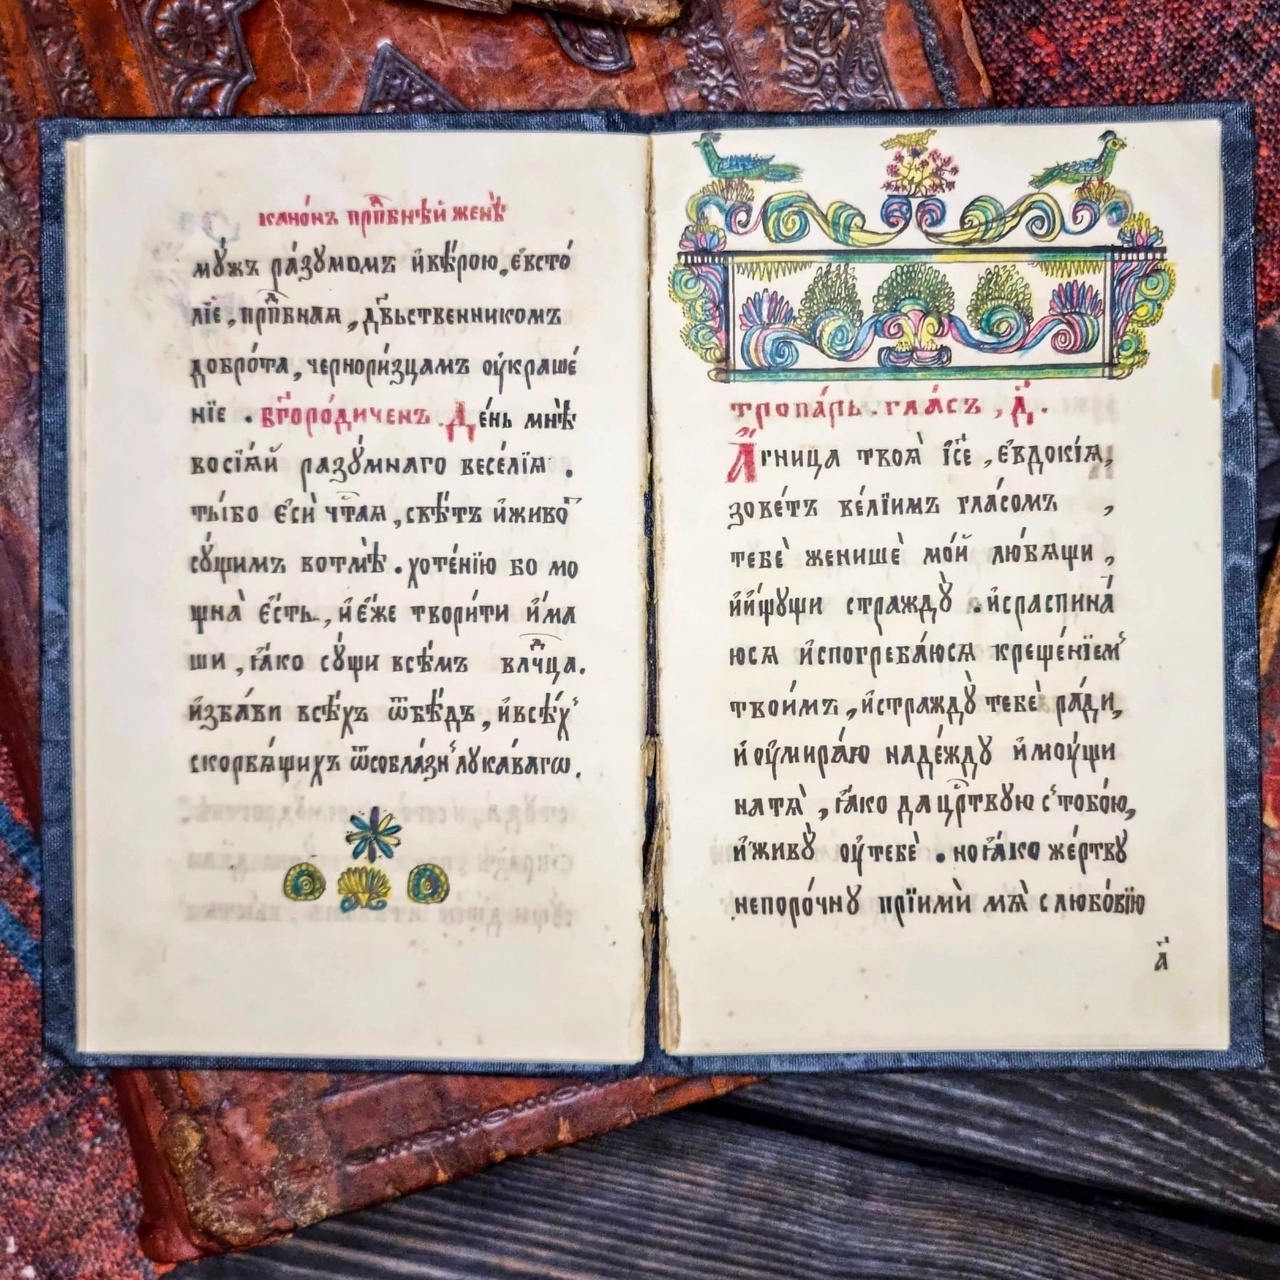 канѡ́нъ прпⷣбнѣй женѣ̀
мꙋ́жъ ра́зꙋмомъ и҆вѣ́рою, є҆ѵсто́
лїе, прпⷣбнаѧ, дв҃ьственникомъ
добро́та, черно́ризцамъ оу҆краше́
нїе . бг҃оро́диченъ. де́нь мнѣ̀
восїѧ́й ра́зꙋмнаго весе́лїѧ .
ты́бо є҆сѝ чⷭ҇таѧ, свѣ́тъ и҆живо́
сꙋ́щимъ вотмѣ̀ . хоте́нїю бо мо
щна̀ є҆́сть, и҆є҆́же твори́ти и҆́ма
ши, ꙗ҆́ко сꙋ́щи всѣ́мъ влⷣчца.
и҆зба́ви всѣ́хъ ѿбѣ́дъ, и҆всѣ́х̾
скорбѧ́щихъ ѿсобла́зн̾ лꙋка́вагѡ.
тропа́рь . гла́съ , д҃ .
А҆́гница твоѧ̀ і҆с҃е , є҆ѵдокі́ѧ,
зове́тъ ве́лїимъ гла́сомъ ,
тебѐ женишѐ мо́й любѧ́щи ,
и҆и҆́щꙋщи страждꙋ̀ . и҆сраспина́
юсѧ и҆спогреба́юсѧ креще́нїем̾
твои́мъ, и҆страждꙋ̀ тебѐ ра́ди,
и҆ оу҆мира́ю наде́ждꙋ и҆моу́щи
натѧ̀ , ꙗ҆́ко да црⷭ҇твꙋю с̾тобо́ю,
и҆живꙋ̀ оу҆тебѐ . ноꙗ҆́ко же́ртвꙋ
непоро́чнꙋ прїимѝ мѧ̀ с любо́вїю
а҃